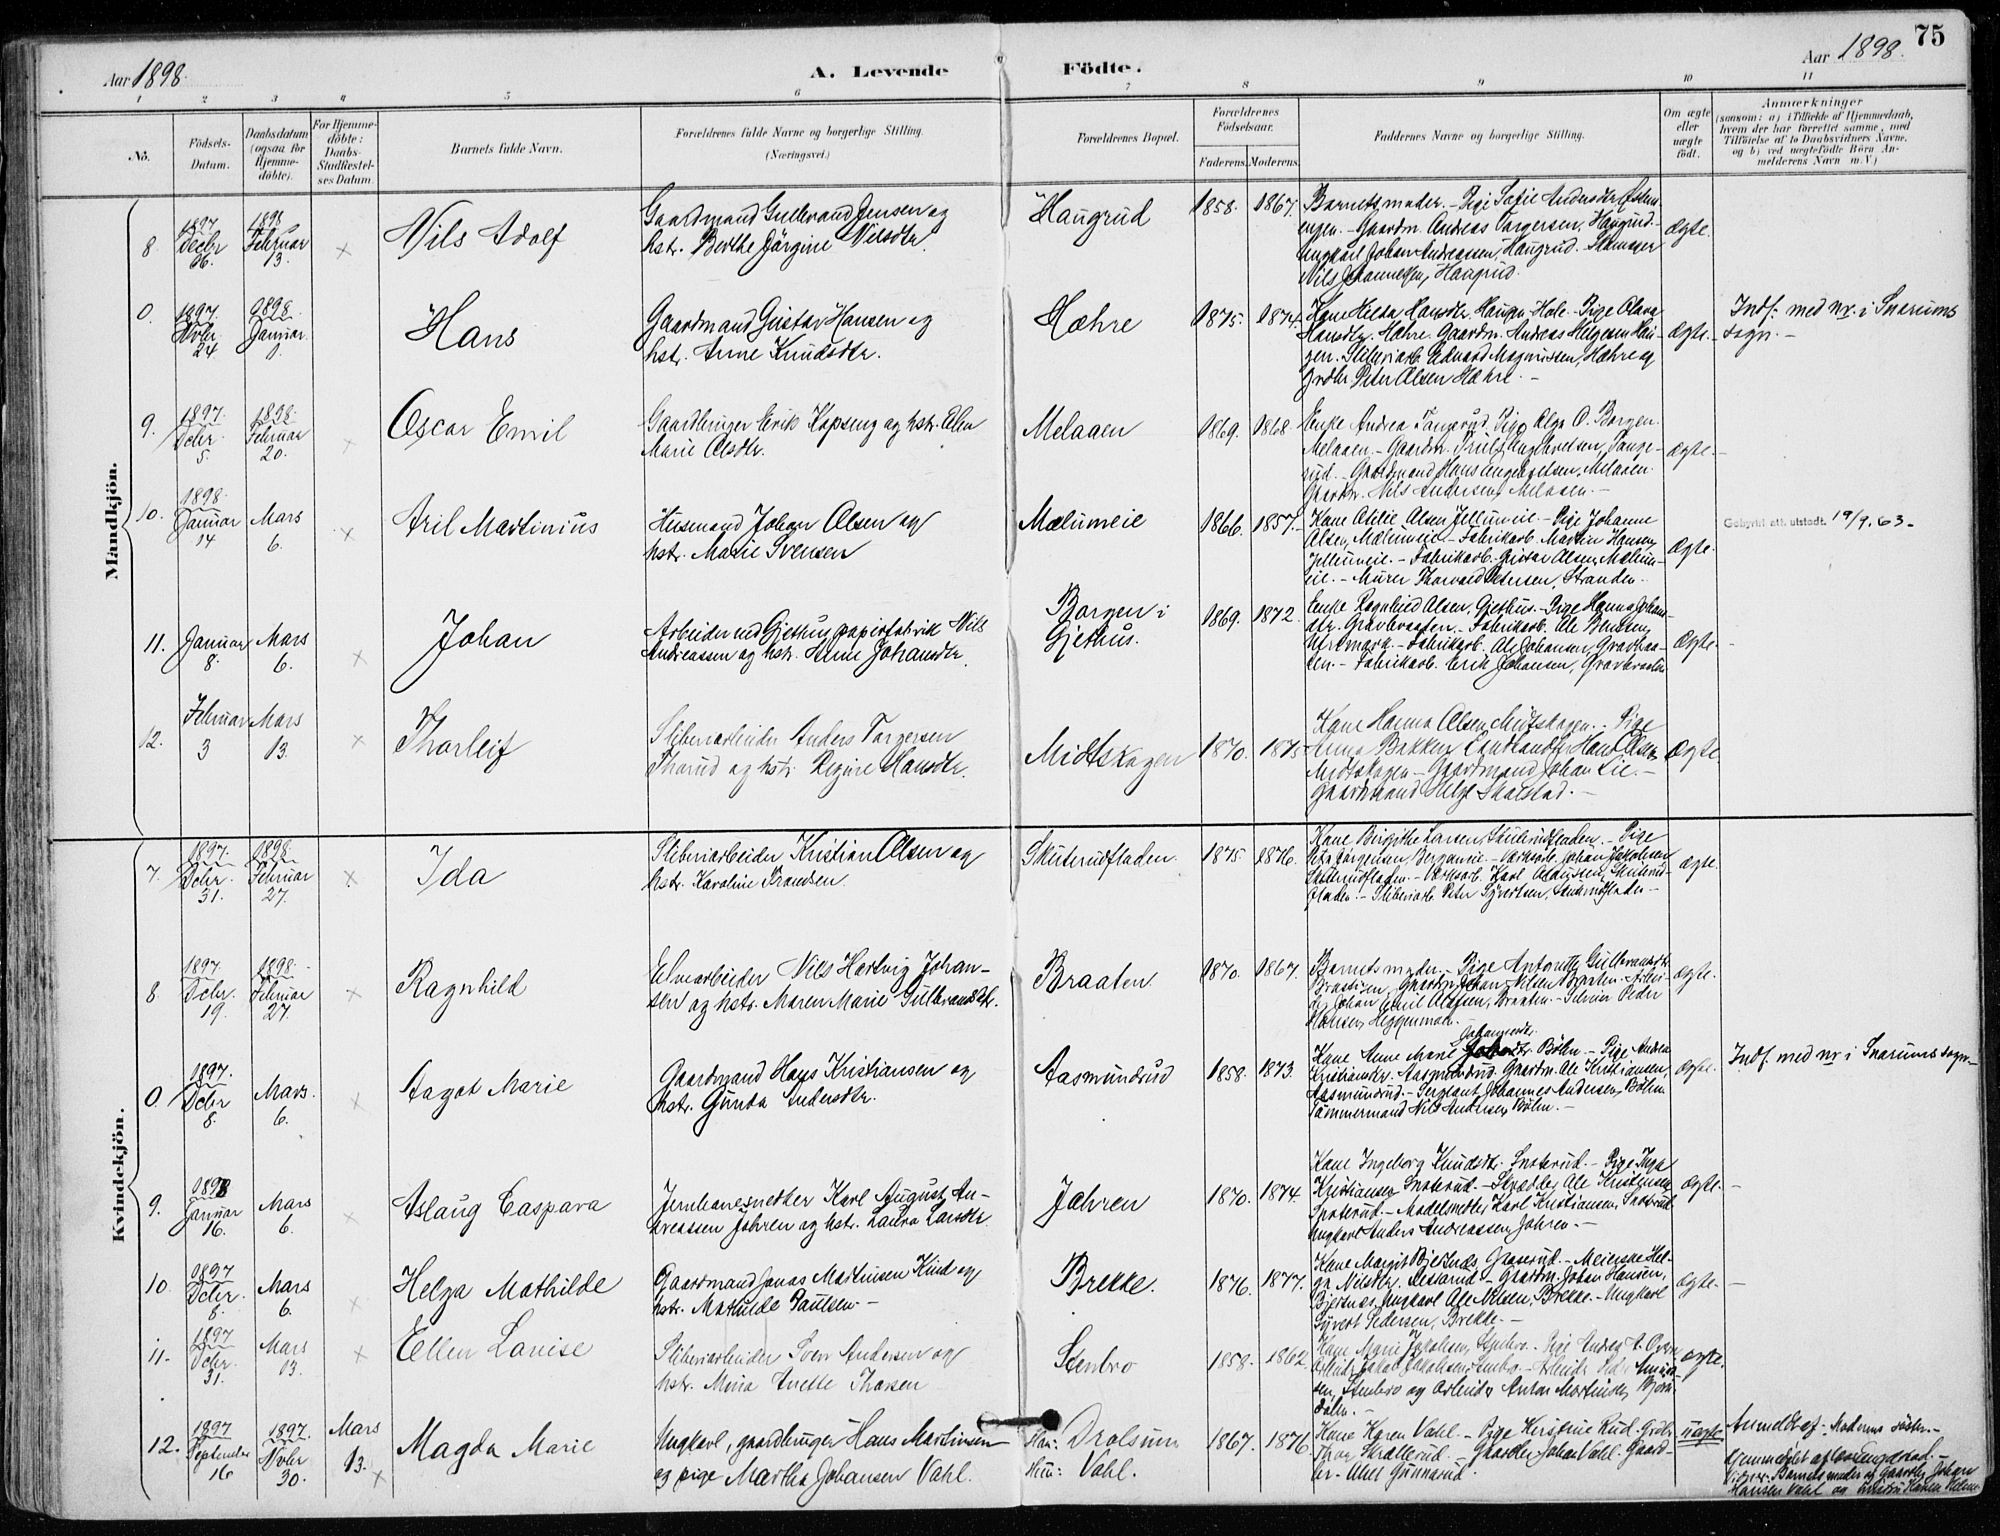 75
Aar 1898.
A. Levende Födte.
Aar 1898.
1 2 3 4 5 6 7 8 9 10 11
No.
Födsels-
Datum.
Daabsdatum
(ogsaa for
Hjemme-
döbte).
For Hjemme-
döbte:
Daabs-
Stadfæstel-
ses Datum.
Barnets fulde Navn.
Forældrenes fulde Navne og borgerlige Stilling.
(Næringsvei.)
Forældrenes Bopæl.
Forældrenes
Födselsaar.
Faderens. Moderens.
Faddernes Navne og borgerlige Stilling.
Om ægte
eller
uægte
födt.
Anmærkninger
(saasom: a) i Tilfælde af Hjemmedaab,
hvem der har forrettet samme, med
Tilföielse af to Daabsvidners Navne,
og b) ved uægtefödte Börn An-
melderens Navn m. V.)
Mandkjön.
8.
1897.
Decbr
26.
1898
Februar
13.
×
Nils Adolf
Gaardmand Gulbrand Jensen og
hstr. Berthe Jörgine Nilsdtr.
Haugrud
1858. 1867.
Barnets moder. – Pige Sofie Andersdtr Østen-
engen. – Gaardm. Andreas Torgersen, Haugrud. –
Ungkarl Johan Andreassen, Haugrud.
Nils Johannessen, Haugrud.
ægte.
0.
1897.
Novbr
24
1898.
Januar
Hans
Gaardmand Gustav Hansen og
hstr. Anne Knudsdtr.
Hæhre
1875. 1874.
Kone Helga Hansdtr Haugen Hole – Pige Olava
Hansdtr. Hæhre. Gaardm. Andreas Helgesen Hau-
gen. Sliberiarb. Edvard Magnussen, Hæhre og
Peter Olsen Hæhre. –
ægte. –
Indf. med nr. i Snarums
sogn. –
9.
1897.
Dcbr.
5.
1898.
Februar
20.
×
Oscar Emil
Gaardbruger Erik Kopseng og hstr. Elen
Marie Olsdtr.
Melaaen
1869. 1868.
Enke Andrea Tangerud. Pige Olga O. Borgen
Melaaen. – Gaardm. Truls Tange-
rud. – Gaardmand Hans Engebretsen, Melaaen.
Gaardbr. Nils Andersen, Melaaen. –
ægte. –
10.
1898.
Januar
14
Mars
6.
×
Aril Martinius
Husmand Johan Olsen og
hstr. Marie Svensen
Mælumeie
1866. 1857. –
Kone Otilie Olsen Jellumeie – Pige Johanne
Olsen, Mælumeie. – Fabrikarb. Martin Hansen,
Jellumeie. – Fabrikarb. Gustav Olsen, Mælum-
eie. – Murer Thorvald Petersen, Stranden. –
ægte.
Gebyrfri att. utstedt. 19/9. 63. –
11.
Januar
8.
Mars
6.
×
Johan
Arbeider ved Gjethus papirfabrik Nils
Andreassen og hstr. Anne Johansdtr.
Borgen i
Gjethus.
1869. 1872.
Enke Ragnhild Olsen, Gjethus. – Pige Hanna Johans-
dtr. Gravbraaten. – Fabrikarb. Ole Bentsen,
– Fabrikarb. Ole Johansen, Gravbraa-
ten. – Fabrikarb. Erik Johansen, Gravbraaten
ægte. –
12.
Februar
3
Mars
13.
×
Thorleif
Sliberiarbeider Anders Torgersen
Thorud og hstr. Regine Hansdtr.
Midtskogen
1870. 1875
Kone Hanna Olsen, Midtskogen. – Pige
Anna Bakken. Hans Olsen
Midtskogen – Gaardmand Johan Lie. –
Gaardmand Helge Skalstad. –
ægte.
Kvindekjön.
7.
1897.
Dcbr.
31.
1898.
Februar
27.
×
Ida
Sliberiarbeider Kristian Olsen og
hstr. Karoline Trandsen
Skuterudfladen.
1875. 1876.
Kone Birgitte Larsen, Skuterudfladen. – Pige
Jörgensen, Berganeie. – Værksarb. Johan Jakobsen
Skuterudfladen. – Værksarb. Karl Skuterud-
fladen. – Sliberiarb. Peter Syvertsen, Skuterudfladen –
ægte.
8.
1897.
Dcbr.
19.
1898.
Februar
27.
×
Ragnhild
Elvearbeider Nils Hartvig Johan-
sen og hstr. Maren Marie Gulbrandsdtr.
Braaten
1870. 1867.
Barnets moder. – Pige Antonette Gulbrandsdtr.
Braaten. Gaardm. Johan Nilsen Braaten – Arbei-
der Johan Emil Olafsen, Braaten. – Peder
Hansen, Heggenmoen. –
ægte.
0.
1897.
Dcbr
8.
Mars.
6.
×
Aagot Marie
Gaardmand Hans Kristiansen og
hstr. Gunda Andersdtr.
Aasmundrud
1858. 1873.
Johannesdtr.
Kone Anne Marie Bölen – Pige Andrea
Kristiansdtr. Aasmundrud. Gaardm. Ole Kristiansen,
Aasmundrud. – Sergeant Johannes Andersen, Bölen.
Tömmermand Nils Andersen, Bölen. –
ægte.
Indf. med nr i Snarums sogn –
9.
1898
Januar
16.
Mars
6.
×
Aslaug Caspara
Jernbanesnedker Karl August An-
dreassen Johren og hstr. Laura Larsdtr
Johren
1870. 1874.
Kone Ingeborg Knudsdtr. Snoterud. – Pige Inga
Kristiansen Snoterud. – Skrædder Ole Kristiansen
Snoterud. – Modelsnedker Karl Kristiansen, Snoterud
Ungkarl Anders Andreassen, Johren. –
ægte. –
10.
1897
Dcbr.
8.
Mars
6.
×
Helga Mathilde
Gaardmand Jonas Martinsen Kind og
hstr. Mathilde Paulsen. –
Brekke.
1876. 1877.
Kone Margit Bjertnæs, Grøterud. – Meierske Hel-
ga Nilsdtr. – Gaardm. Johan Hansen,
Bjertnæs. Ungkarl Ole Nilsen, Brekke. – Ungkarl
Syvert Pedersen, Brekke. –
ægte. –
11.
1897
Dcbr.
31.
Mars
13.
×
Ellen Lovise
Sliberiarbeider Sven Andersen og
hstr. Mina Anette Thorsen
Stenbro
1858. 1862.
Kone Marie Jakobsen, Stenbro. Pige Andrea A.
Arbeider Jakob Jakobsen, Stenbro. – Arbeider
Stenbro og Arbeider Anton Martinsen, Bjørn-
dalen. –
ægte.
12.
1897
September
16
1897.
Novbr
30.
Mars
13.
×
Magda Marie
Ungkarl, gaardbruger Hans Martinsen
og pige Martha Johansen Vahl.
Han: Drolsum
Hun: Vahl.
1867. 1876
Kone Karen Vahl. – Pige Kirstine Rud. Grdbr
Thor Skallerud. Gaardbr. Johan Vahl. Gaard-
br. Gunnerud.
uægte.
Anmeldt af Moderens söster. –
Hjemmedöbt af
Barnets moder og gaardbr. Johan
Hansen Vahl og